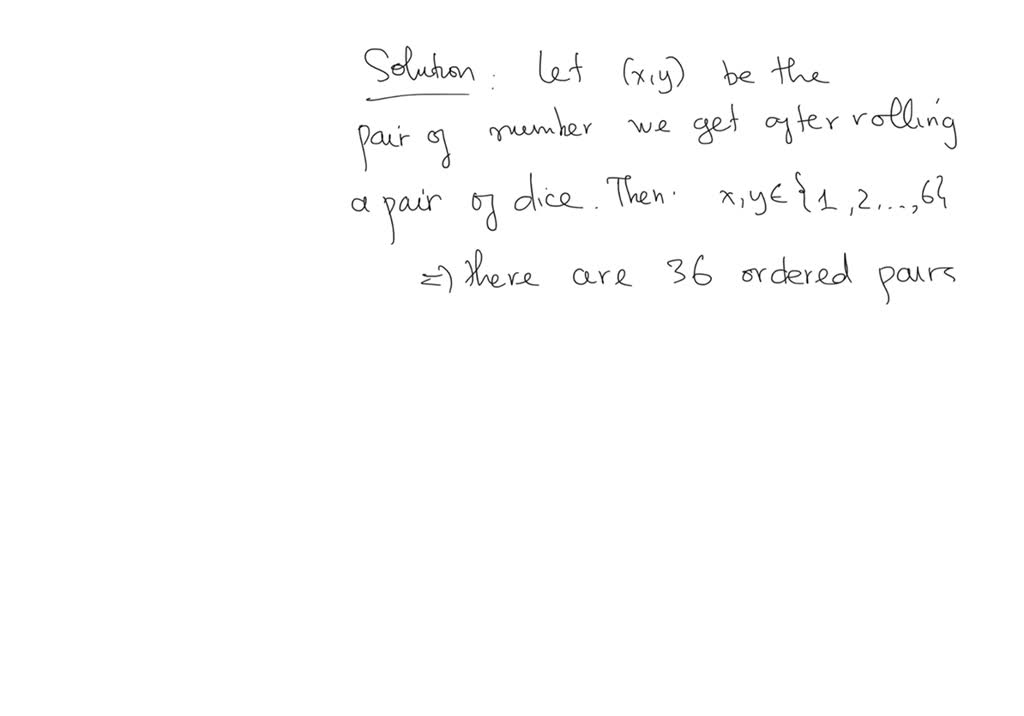 Solution: Let (x,y) be the
pair of number we get after rolling
a pair of dice. Then x,y∈{1,2,...,6}
=> there are 36 ordered pairs